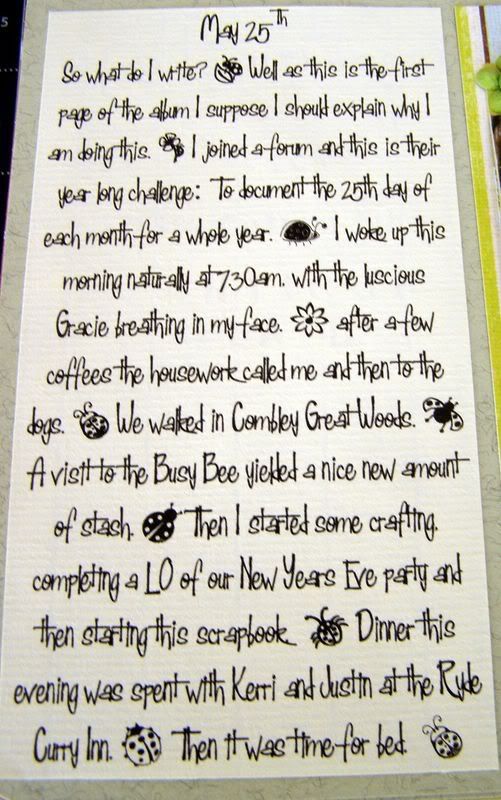 May 25th
So what do I write? Well as this is the first
page of the album I suppose I should explain why I
am doing this. I joined a forum and this is their
year long challenge: To document the 25th day of
each month for a whole year. I woke up this
morning naturally at 7.30am. with the luscious
Gracie breathing in my face. after a few
coffees the housework called me and then to the
dogs. We walked in Combley Great Woods.
A visit to the Busy Bee yielded a nice new amount
of stash. Then I started some crafting.
completing a LO of our New Years Eve party and
then starting this scrapbook. Dinner this
evening was spent with Kerri and Justin at the Ryde
Curry Inn. Then it was time for bed.